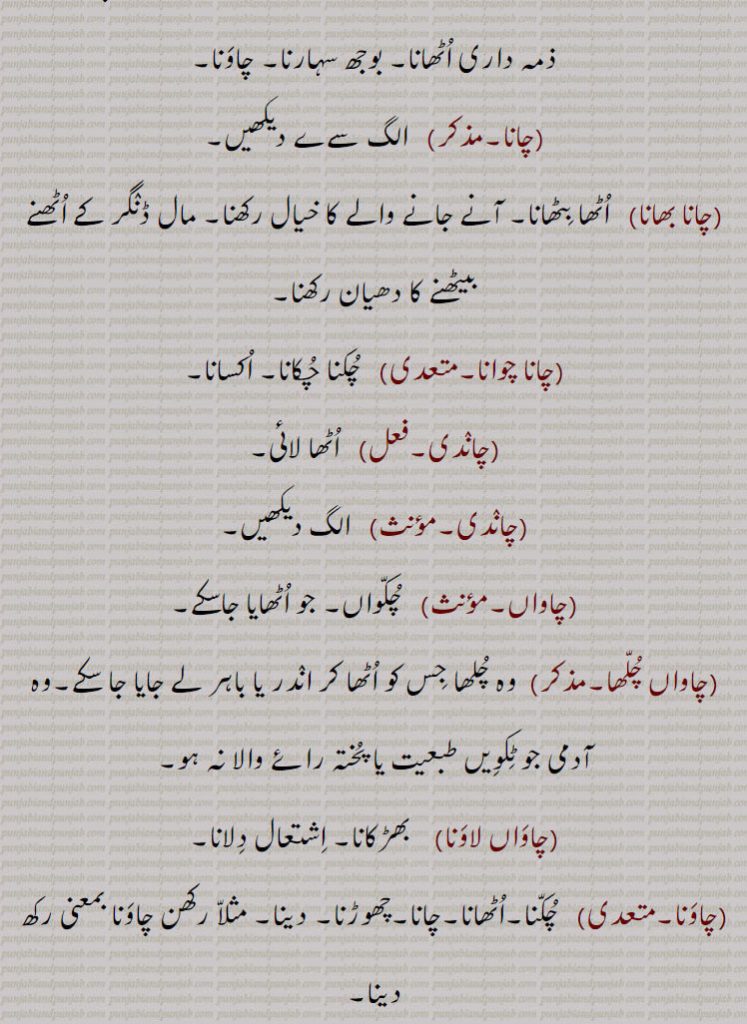 ذمہ داری اُٹھانا۔ بوجھ سہارنا۔ چاوَنا۔
(چانا۔مذکر) الگ سے ے دیکھیں۔
(چانا بھانا) اُٹھا بِٹھانا۔ آنے جانے والے کا خیال رکھنا۔ مال ڈنگر کے اُٹھنے
بیٹھنے کا دھیان رکھنا۔
(چانا چوانا۔متعدی) چُکنا چُکانا۔ اُکسانا۔
(چان٘دی۔فعل) اُٹھا لائی۔
(چان٘دی۔مؤنث) الگ دیکھیں۔
(چاواں۔مؤنث) چُکّواں۔ جو اُٹھایا جاسکے۔
(چاواں چُلّھا۔مذکر) وہ چُلھا جِس کو اُٹھا کر ان٘در یا باہر لے جایا جا سکے۔وہ
آدمی جو ٹِکوِیں طبعیت یا پُختہ رائے والا نہ ہو۔
(چاوَاں لاوَنا) بھڑکانا۔ اِشتعال دِلانا۔
(چاوَنا۔متعدی) چُکّنا۔اُٹھانا۔چانا۔چھوڑنا۔ دینا۔ مثلاّ رکھن چاوَنا بمعنی رکھ
دینا۔